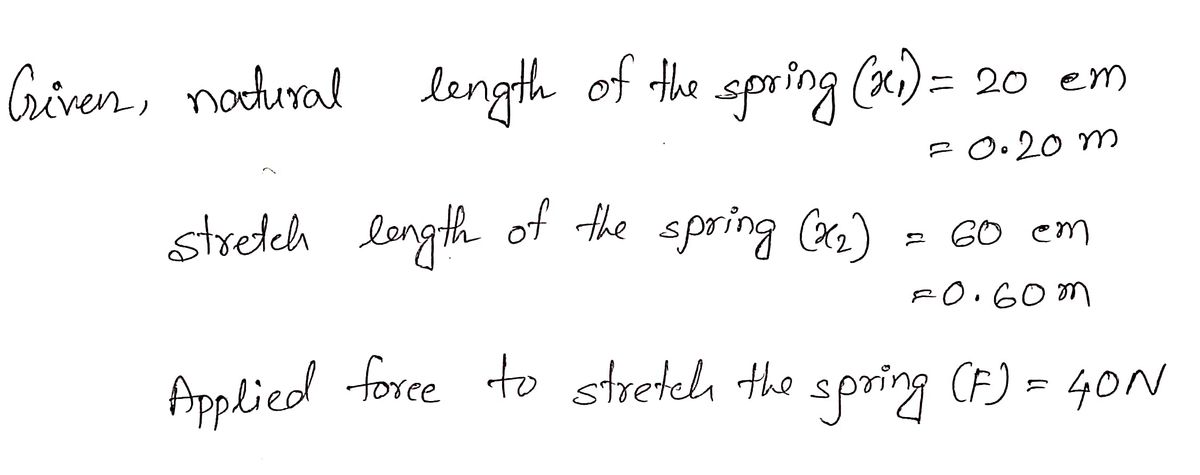 Given, natural length of the spring (x₁) = 20 cm
= 0.20 m
stretch length of the spring (x₂) = 60 cm
= 0.60 m
Applied force to stretch the spring (F) = 40N